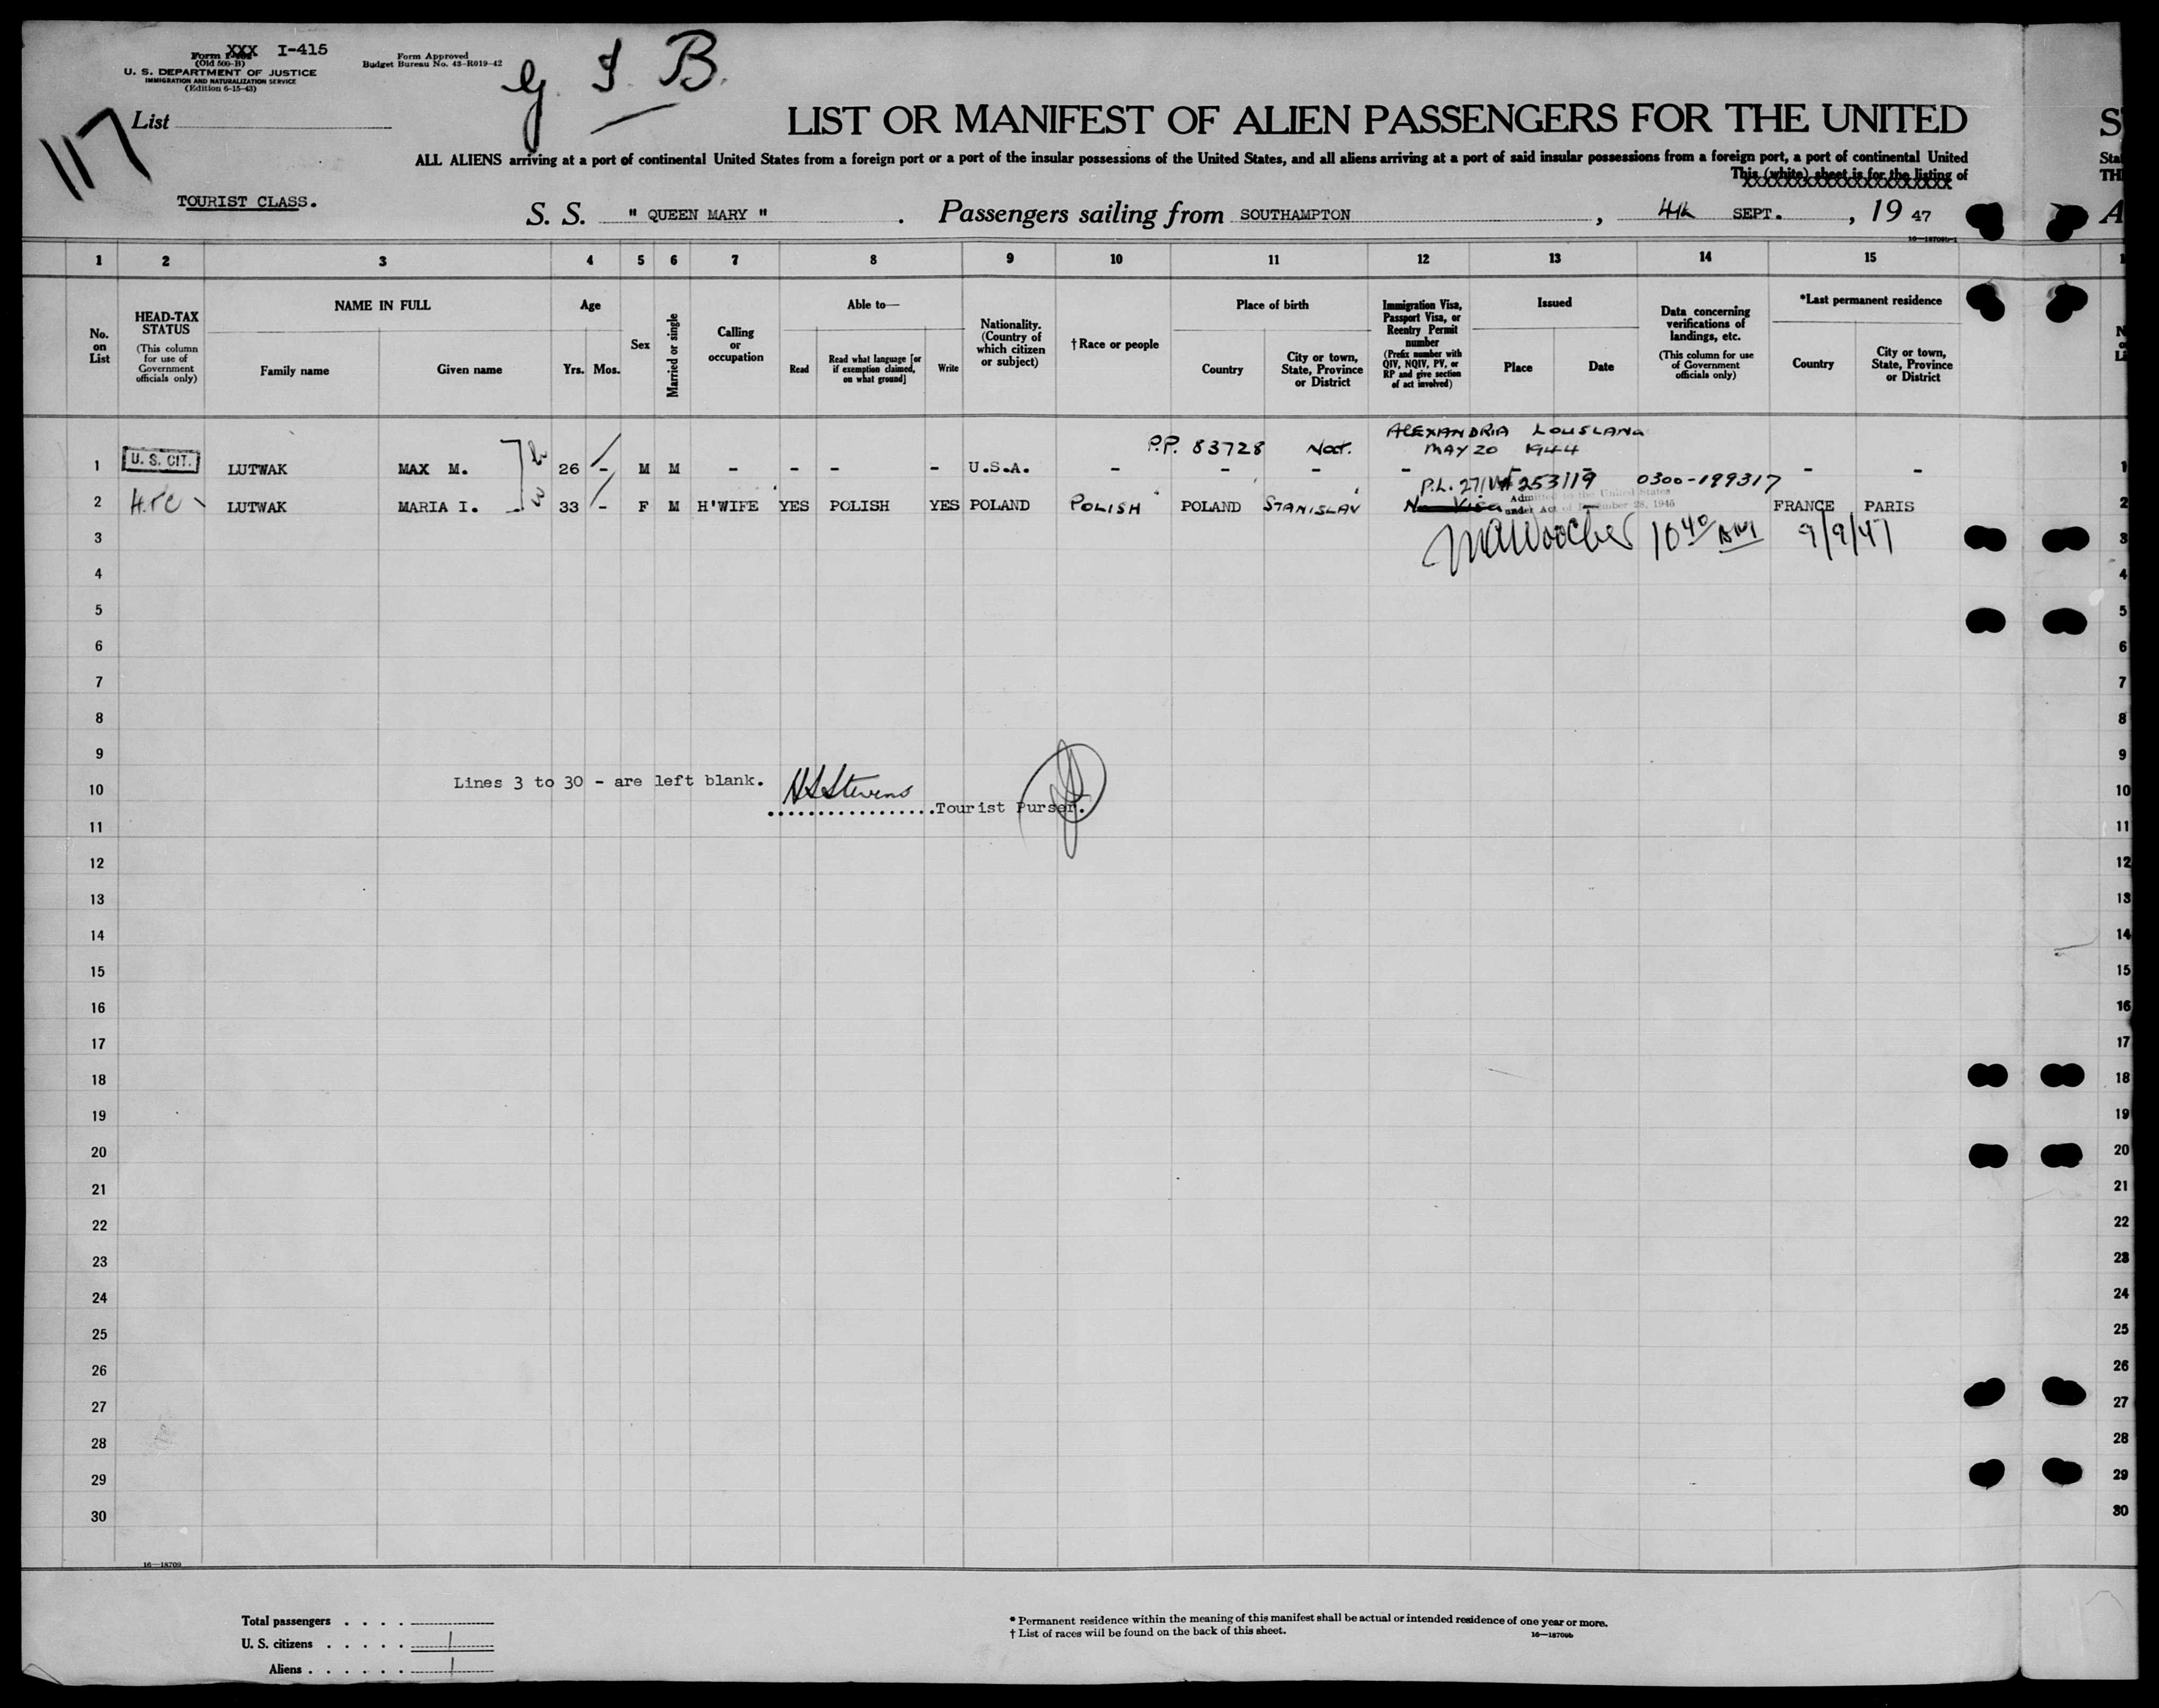 Form XXX I-415
(Old 500-B)
U. S. DEPARTMENT OF JUSTICE
IMMIGRATION AND NATURALIZATION SERVICE
(Edition 6-15-43)
Form Approved
Budget Bureau No. 43-R019-42
117
List
LIST OR MANIFEST OF ALIEN PASSENGERS FOR THE UNITED
ALL ALIENS arriving at a port of continental United States from a foreign port or a port of the insular possessions of the United States, and all aliens arriving at a port of said insular possessions from a foreign port, a port of continental United
This (white) sheet is for the listing of
TOURIST CLASS.
S. S. " QUEEN MARY " . Passengers sailing from SOUTHAMPTON , 4th SEPT. , 19 47
16—18709b-1
1 2 3 4 5 6 7 8 9 10 11 12 13 14 15
No. on List
HEAD-TAX STATUS
(This column for use of Government officials only)
NAME IN FULL
Family name Given name
Age
Yrs. Mos.
Sex
Married or single
Calling or occupation
Able to—
Read
Read what language [or if exemption claimed, on what ground]
Write
Nationality. (Country of which citizen or subject)
†Race or people
Place of birth
Country
City or town, State, Province or District
Immigration Visa, Passport Visa, or Reentry Permit number
(Prefix number with QIV, NQIV, PV, or RP and give section of act involved)
Issued
Place Date
Data concerning verifications of landings, etc.
(This column for use of Government officials only)
*Last permanent residence
Country
City or town, State, Province or District
P.P. 83728 Nat. ALEXANDRIA LOUISLANA
MAY 20 1944
1 U. S. CIT. LUTWAK MAX M. 26 - M M - - - - U.S.A. - - - - - - - 1
P.L. 271 253119 0300-199317
2 LUTWAK MARIA I. 33 - F M H'WIFE YES POLISH YES POLAND POLISH POLAND STANISLAV No Visa FRANCE PARIS 2
Admitted to the United States
under Act of December 28, 1945
10 40 AM 9/9/47
3 3
4 4
5 5
6 6
7 7
8 8
9 9
Lines 3 to 30 - are left blank.
10 10
HLStevens
Tourist Purser.
11 11
12 12
13 13
14 14
15 15
16 16
17 17
18 18
19 19
20 20
21 21
22 22
23 23
24 24
25 25
26 26
27 27
28 28
29 29
30 30
16—18709
Total passengers . . . .
U. S. citizens . . . . . 1
Aliens . . . . . . 1
* Permanent residence within the meaning of this manifest shall be actual or intended residence of one year or more.
† List of races will be found on the back of this sheet.
16—18709b